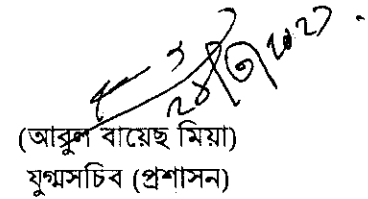 (আবুল বায়েছ মিয়া)
যুগ্মসচিব (প্রশাসন)